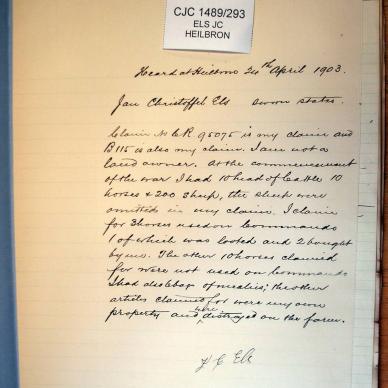 CJC 1489/293
ELS JC
HEILBRON
Heard at Heilbron 24th April 1903.
Jan Christoffel Els sworn states.
Claim No C.R. 95075 is my claim and
B 115 is also my claim. I am not a
land owner. At the commencement
of the war I had 10 head of cattle 10
horses & 200 sheep, the sheep were
omitted in my claim. I claim
for 3 horses used on Commando
1 of which was looted and 2 bought
by me. The other 10 horses claimed
for were not used on Commando
I had also bags of mealies; the other
articles claimed for were my own
property and were destroyed on the farm.
J C Els